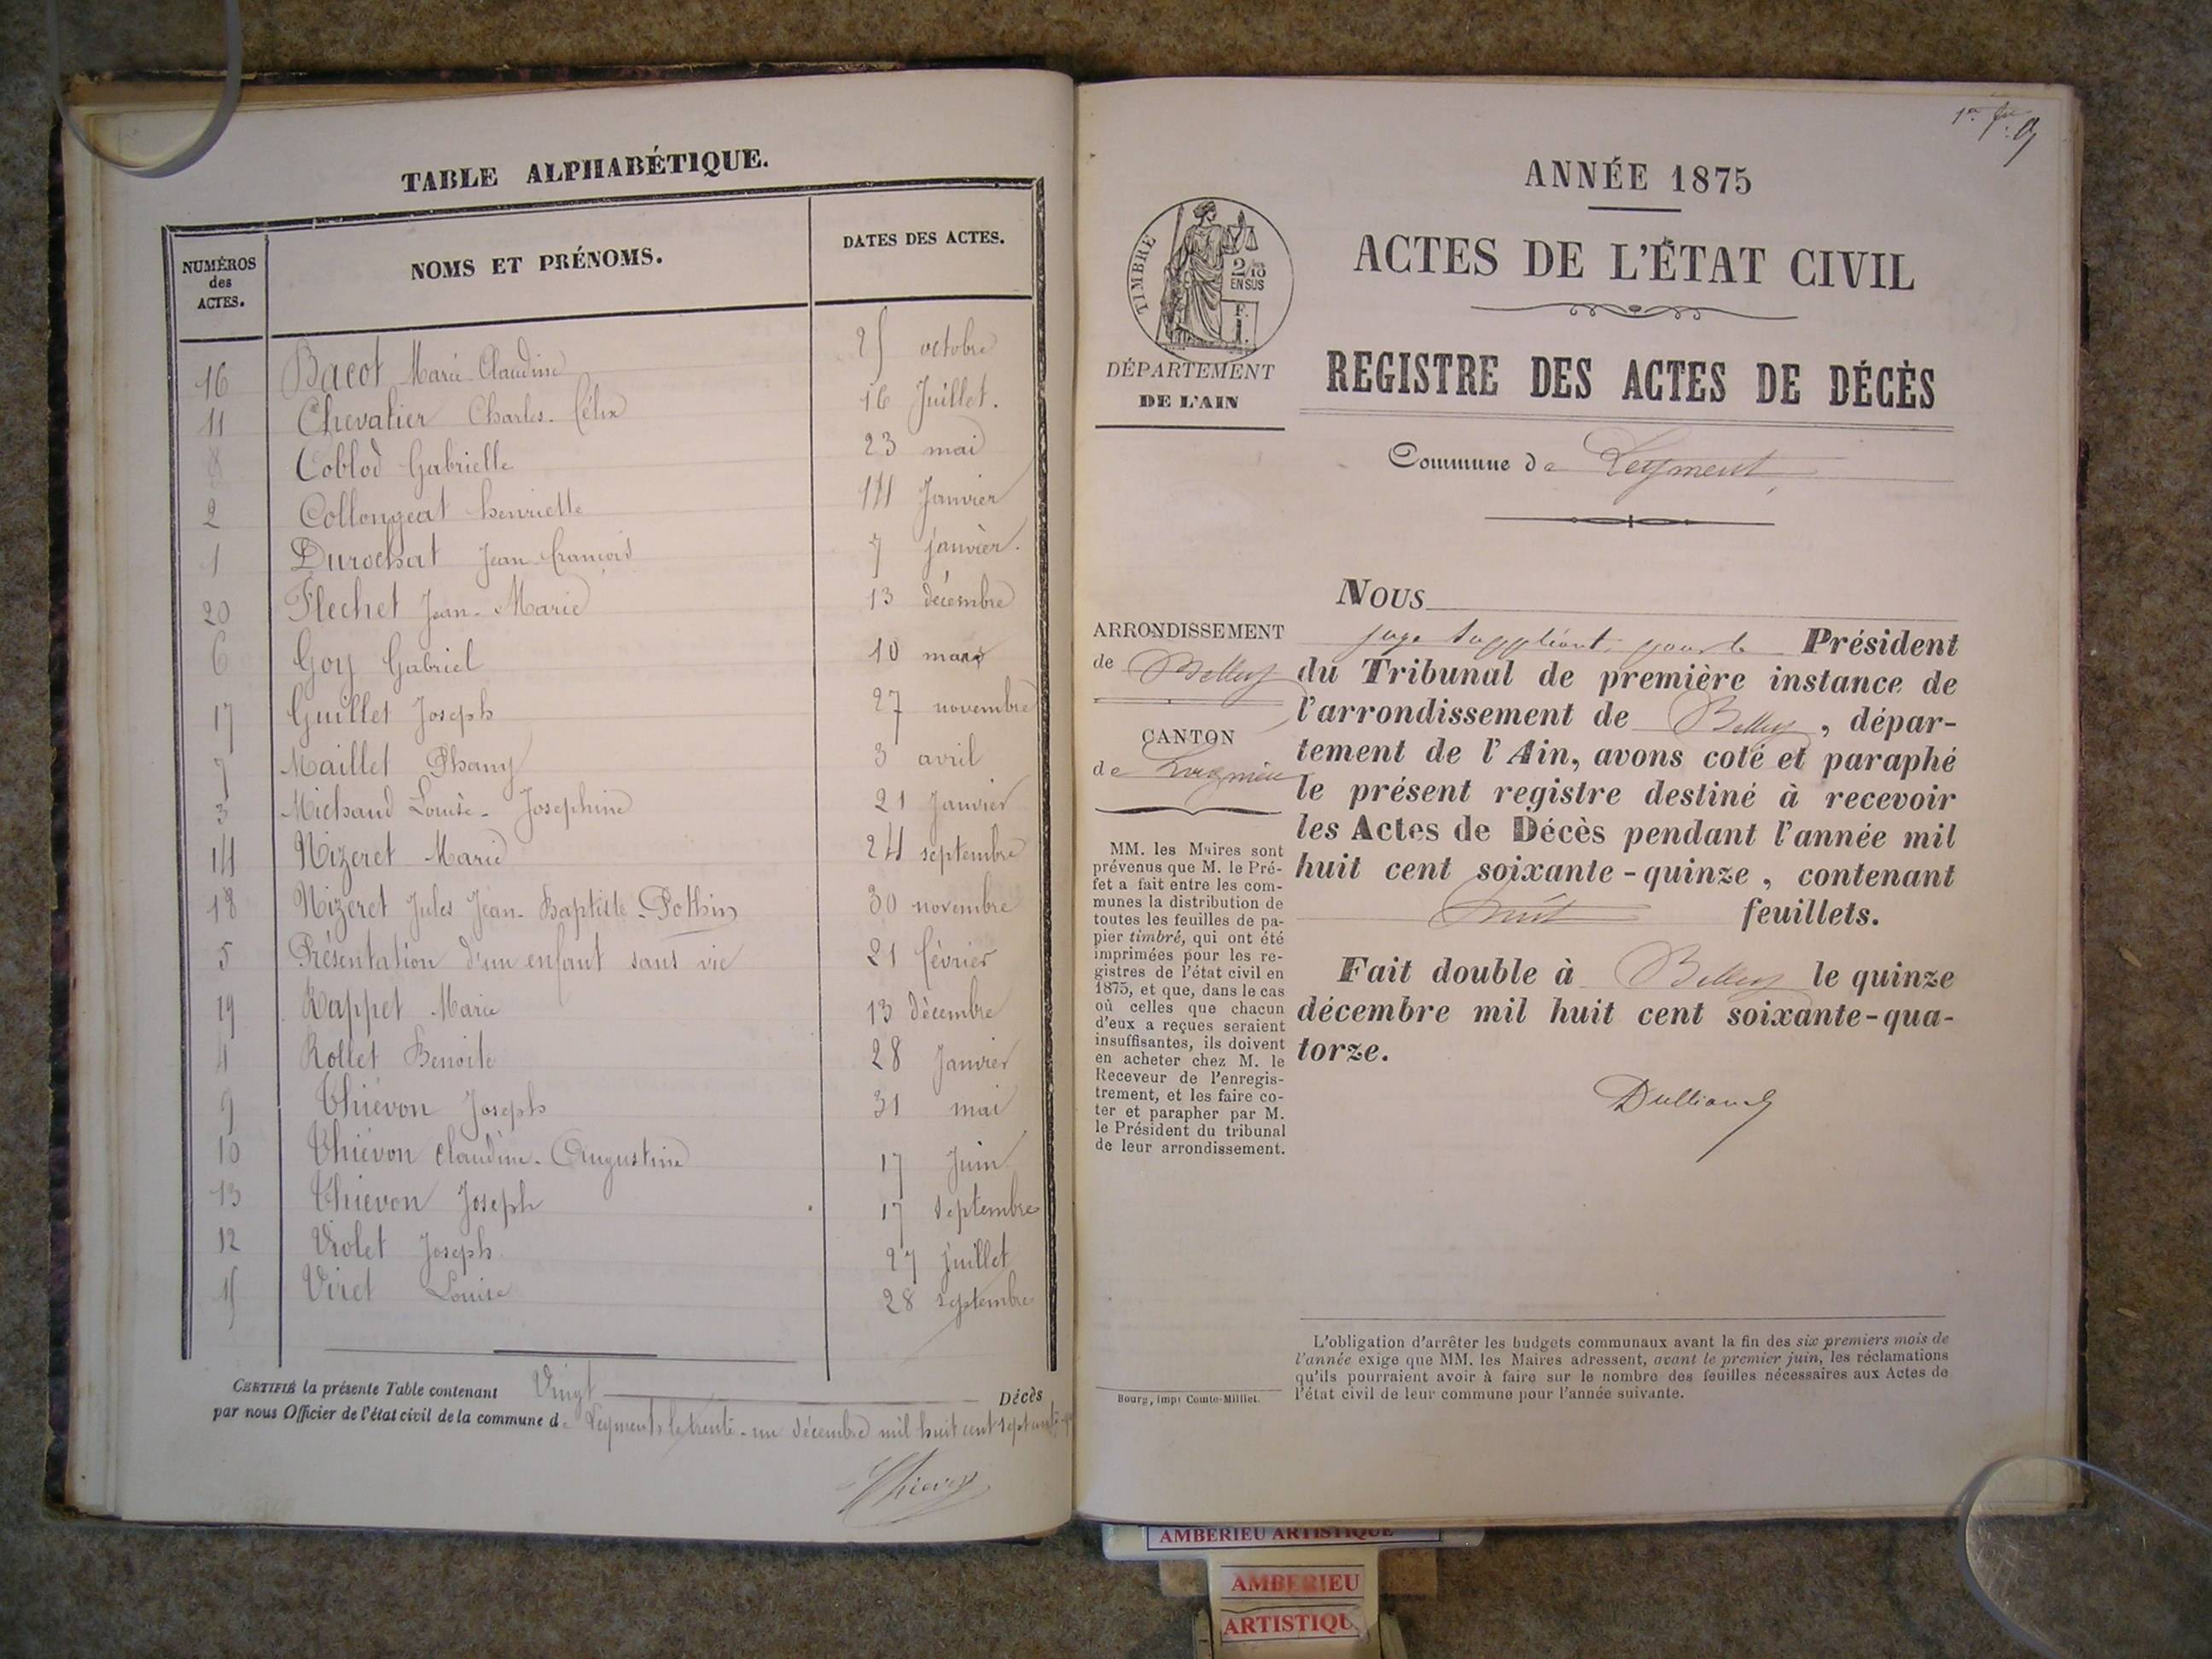 TABLE ALPHABÉTIQUE.
NUMÉROS des ACTES. NOMS ET PRÉNOMS. DATES DES ACTES.
16 Bacot Marie Claudine 25 octobre
11 Chevalier Charles-Félix 16 Juillet.
8 Coblod Gabrielle 23 mai
2 Collongeat henriette 14 Janvier
1 Durochat Jean-François 7 janvier.
20 Flechet Jean-Marie 13 décembre
6 Goy Gabriel 10 mars
17 Guillet Joseph 27 novembre
7 Maillet Phany 3 avril
3 Michaud Louise-Josephine 21 Janvier
14 Nizeret Marie 24 septembre
18 Nizeret Jules Jean-Baptiste-Pothin 30 novembre
5 Présentation d'un enfant sans vie 21 février
19 Rappet Marie 13 décembre
4 Rollet Benoite 28 Janvier
9 Thiévon Joseph 31 mai
10 Thiévon Claudine-Augustine 17 Juin
13 Thiévon Joseph 17 septembre
12 Violet Joseph 27 juillet
15 Viret Louise 28 septembre
CERTIFIÉ la présente Table contenant Vingt Décès
par nous Officier de l'état civil de la commune de Leyment, le trente-un décembre mil huit cent
1er
ANNÉE 1875
ACTES DE L'ÉTAT CIVIL
TIMBRE
2/10 EN SUS
F. 1.
DÉPARTEMENT
DE L'AIN
REGISTRE DES ACTES DE DÉCÈS
Commune de Leyment
ARRONDISSEMENT
de Belley
CANTON
de Lagnieu
MM. les Maires sont
prévenus que M. le Pré-
fet a fait entre les com-
munes la distribution de
toutes les feuilles de pa-
pier timbré, qui ont été
imprimées pour les re-
gistres de l'état civil en
1875, et que, dans le cas
où celles que chacun
d'eux a reçues seraient
insuffisantes, ils doivent
en acheter chez M. le
Receveur de l'enregis-
trement, et les faire co-
ter et parapher par M.
le Président du tribunal
de leur arrondissement.
Bourg, imp. Comte-Milliet.
NOUS
juge suppléant pour le Président
du Tribunal de première instance de
l'arrondissement de Belley, dépar-
tement de l'Ain, avons coté et paraphé
le présent registre destiné à recevoir
les Actes de Décès pendant l'année mil
huit cent soixante-quinze, contenant
huit feuillets.
Fait double à Belley le quinze
décembre mil huit cent soixante-qua-
torze.
L'obligation d'arrêter les budgets communaux avant la fin des six premiers mois de
l'année exige que MM. les Maires adressent, avant le premier juin, les réclamations
qu'ils pourraient avoir à faire sur le nombre des feuilles nécessaires aux Actes de
l'état civil de leur commune pour l'année suivante.
AMBERIEU ARTISTIQUE
AMBERIEU
ARTISTIQU